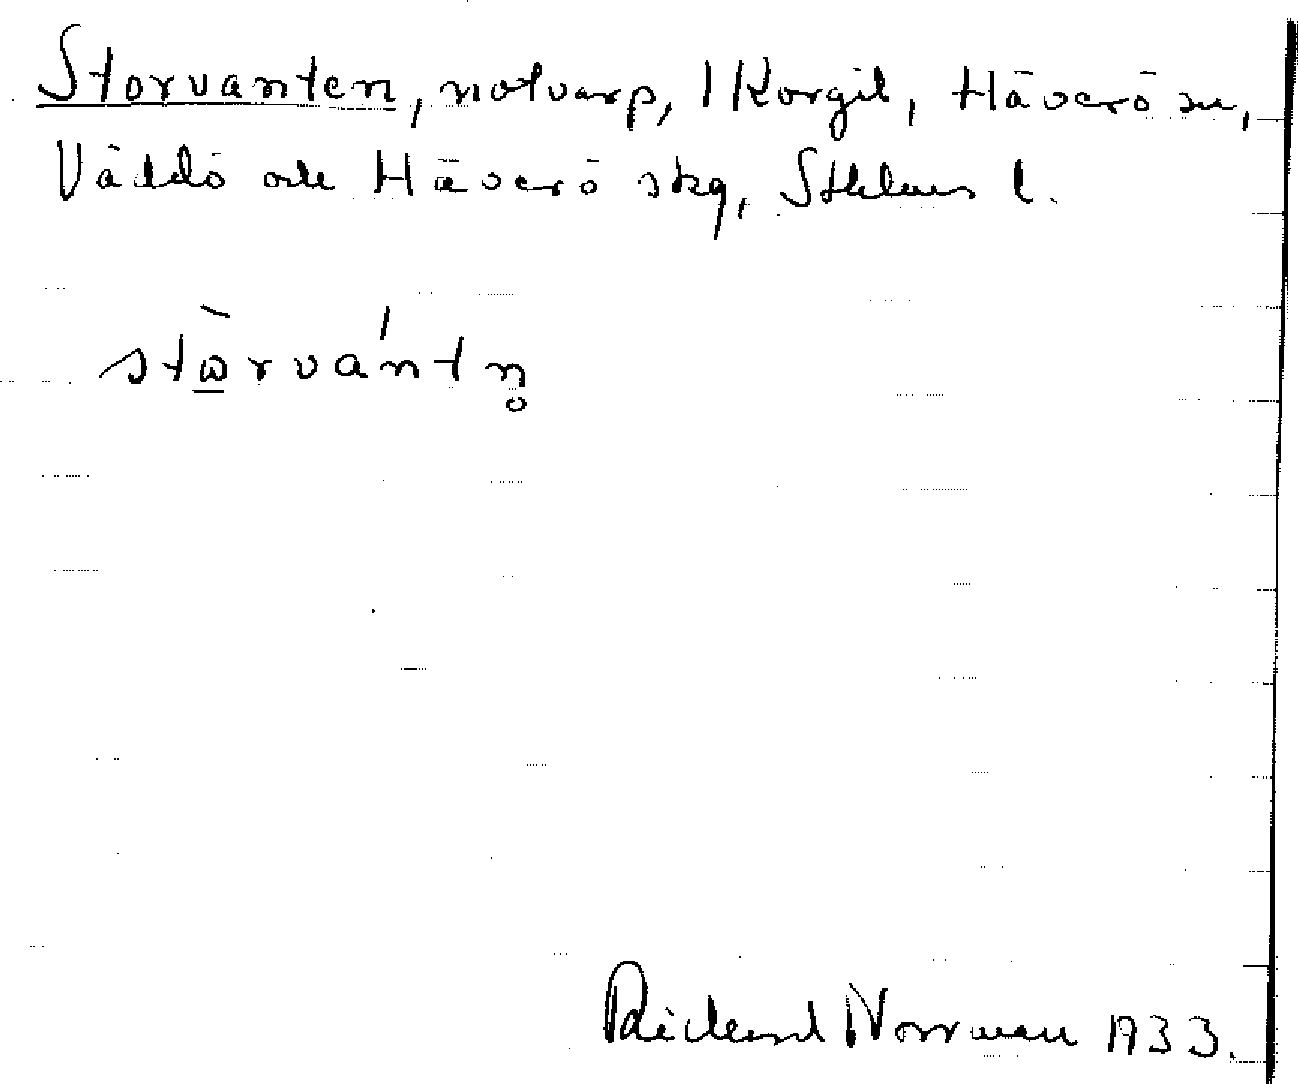 Storvanten, notvarp, 1 Korgil, Häverö sn,
Väddö och Häverö skg, Sthlms l.
stὼ̲rvántn̥
Rickard Norrman 1933.